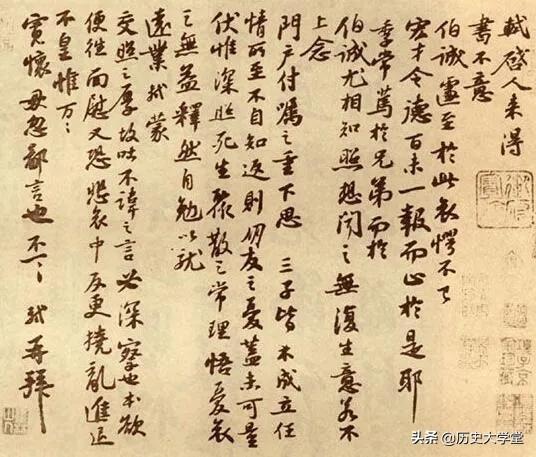 軾啓人來得
書不意
伯誠遽至於此哀愕不已
宏才令德百未一報而止於是耶
季常篤於兄弟而於
伯誠尤相知照想聞之無復生意若不
上念
門户付囑之重下思三子皆未成立任
情所至不自知返則朋友之憂蓋未可量
伏惟深照死生聚散之常理悟憂哀
之無益釋然自勉以就
遠業軾蒙
交照之厚故吐不諱之言必深察也本欲
便往面慰又恐悲哀中反更撓亂進退
不皇惟万万
寬懷毋忽鄙言也不一一軾再拜
头条 @历史大学堂